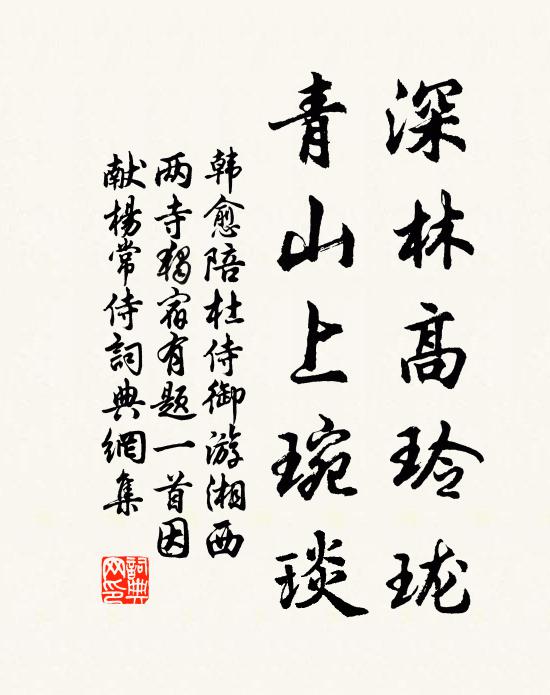 深林高玲珑
青山上琬琰
韩愈陪杜侍御游湘西
两寺独宿有题一首因
献楊常侍詞典網集
詞典
网印